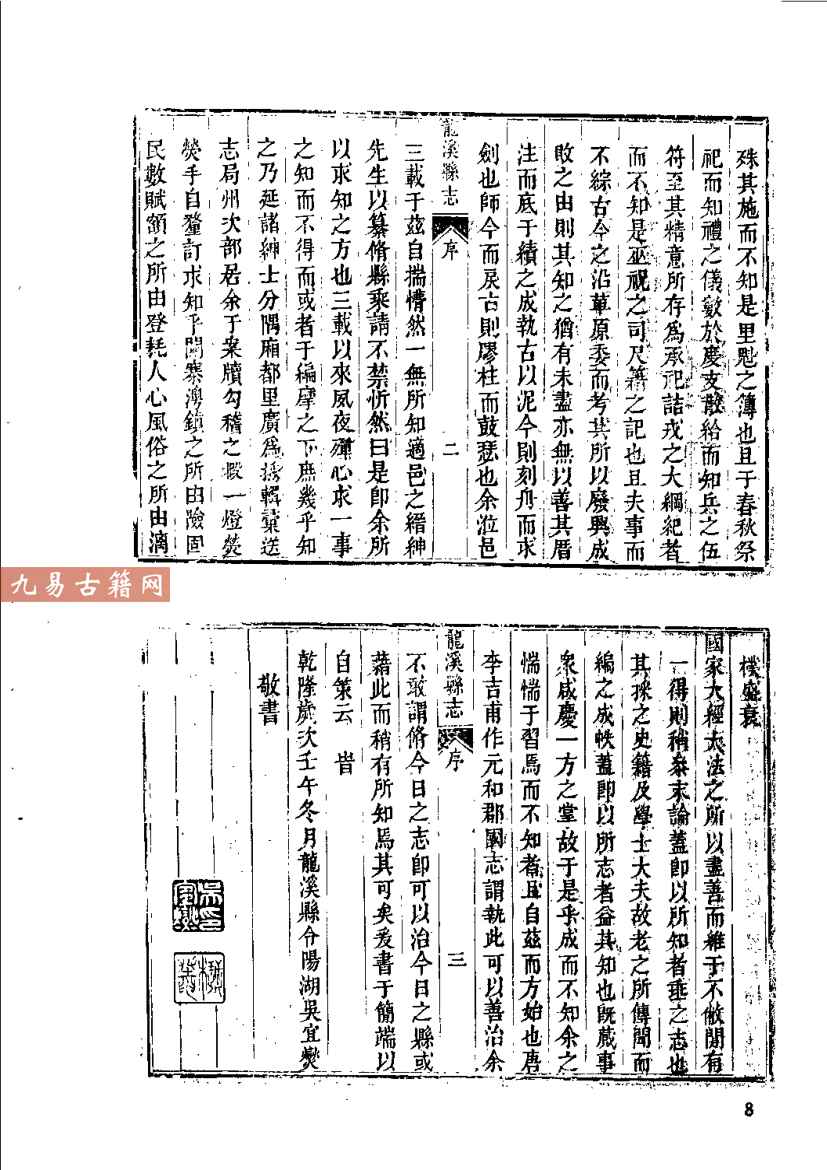 殊其施而不知是里魁之簿也且于春秋祭
祀而知禮之儀數於慶支散給而知兵之伍
符至其精意所存為承祀詰戎之大綱紀者
而不知是巫祝之司尺籍之記也且夫事而
不綜古今之沿革原委而考其所以廢興成
敗之由則其知之猶有未盡亦無以善其厝
注而底于績之成執古以泥今則刻舟而求
劍也師今而戾古則膠柱而鼓瑟也余涖邑
龍溪縣志
序
二
三載于茲自揣懵然一無所知適邑之縉紳
先生以纂脩縣乘請不禁忻然曰是即余所
以求知之方也三載以來夙夜殫心求一事
之知而不得而或者于編摩之下庶幾乎知
之乃延諸紳士分隅廂都里廣為搜輯彙送
志局州次部居余于案牘勾稽之暇一燈熒
熒手自釐訂求知乎關寨澳鎮之所由險固
民數賦額之所由登耗人心風俗之所由漓
樸盛衰
國家大經大法之所以盡善而維于不敝間有
一得則稍參末論蓋即以所知者垂之志也
其採之史籍及學士大夫故老之所傳聞而
編之成帙蓋即以所志者益其知也既蕆事
衆咸慶一方之掌故于是乎成而不知余之
惴惴于習焉而不知者且自茲而方始也唐
李吉甫作元和郡國志謂執此可以善治余
龍溪縣志
序
三
不敢謂脩今日之志即可以治今日之縣或
藉此而稍有所知焉其可矣爰書于簡端以
自策云 旹
乾隆歲次壬午冬月龍溪縣令陽湖吳宜燮
敬書
九易古籍网
8